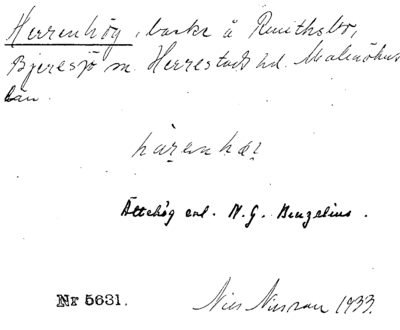 Herrenhög, backe å Ruuthsbo,
Bjeresjö sn. Herrestads hd. Malmöhus
län.
Ättehög enl. N. G. Bruzelius.
Nr 5631.
Nils 1933.